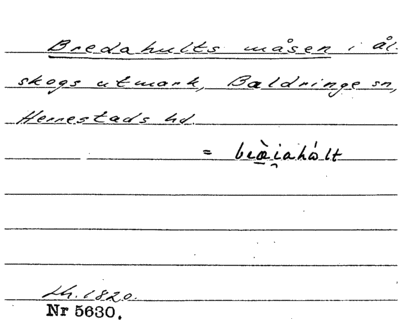 Bredahults måsen i Äl-
skogs utmark, Baldringe sn,
Herrestads hd.
= 
Lh. 1820.
Nr 5630.